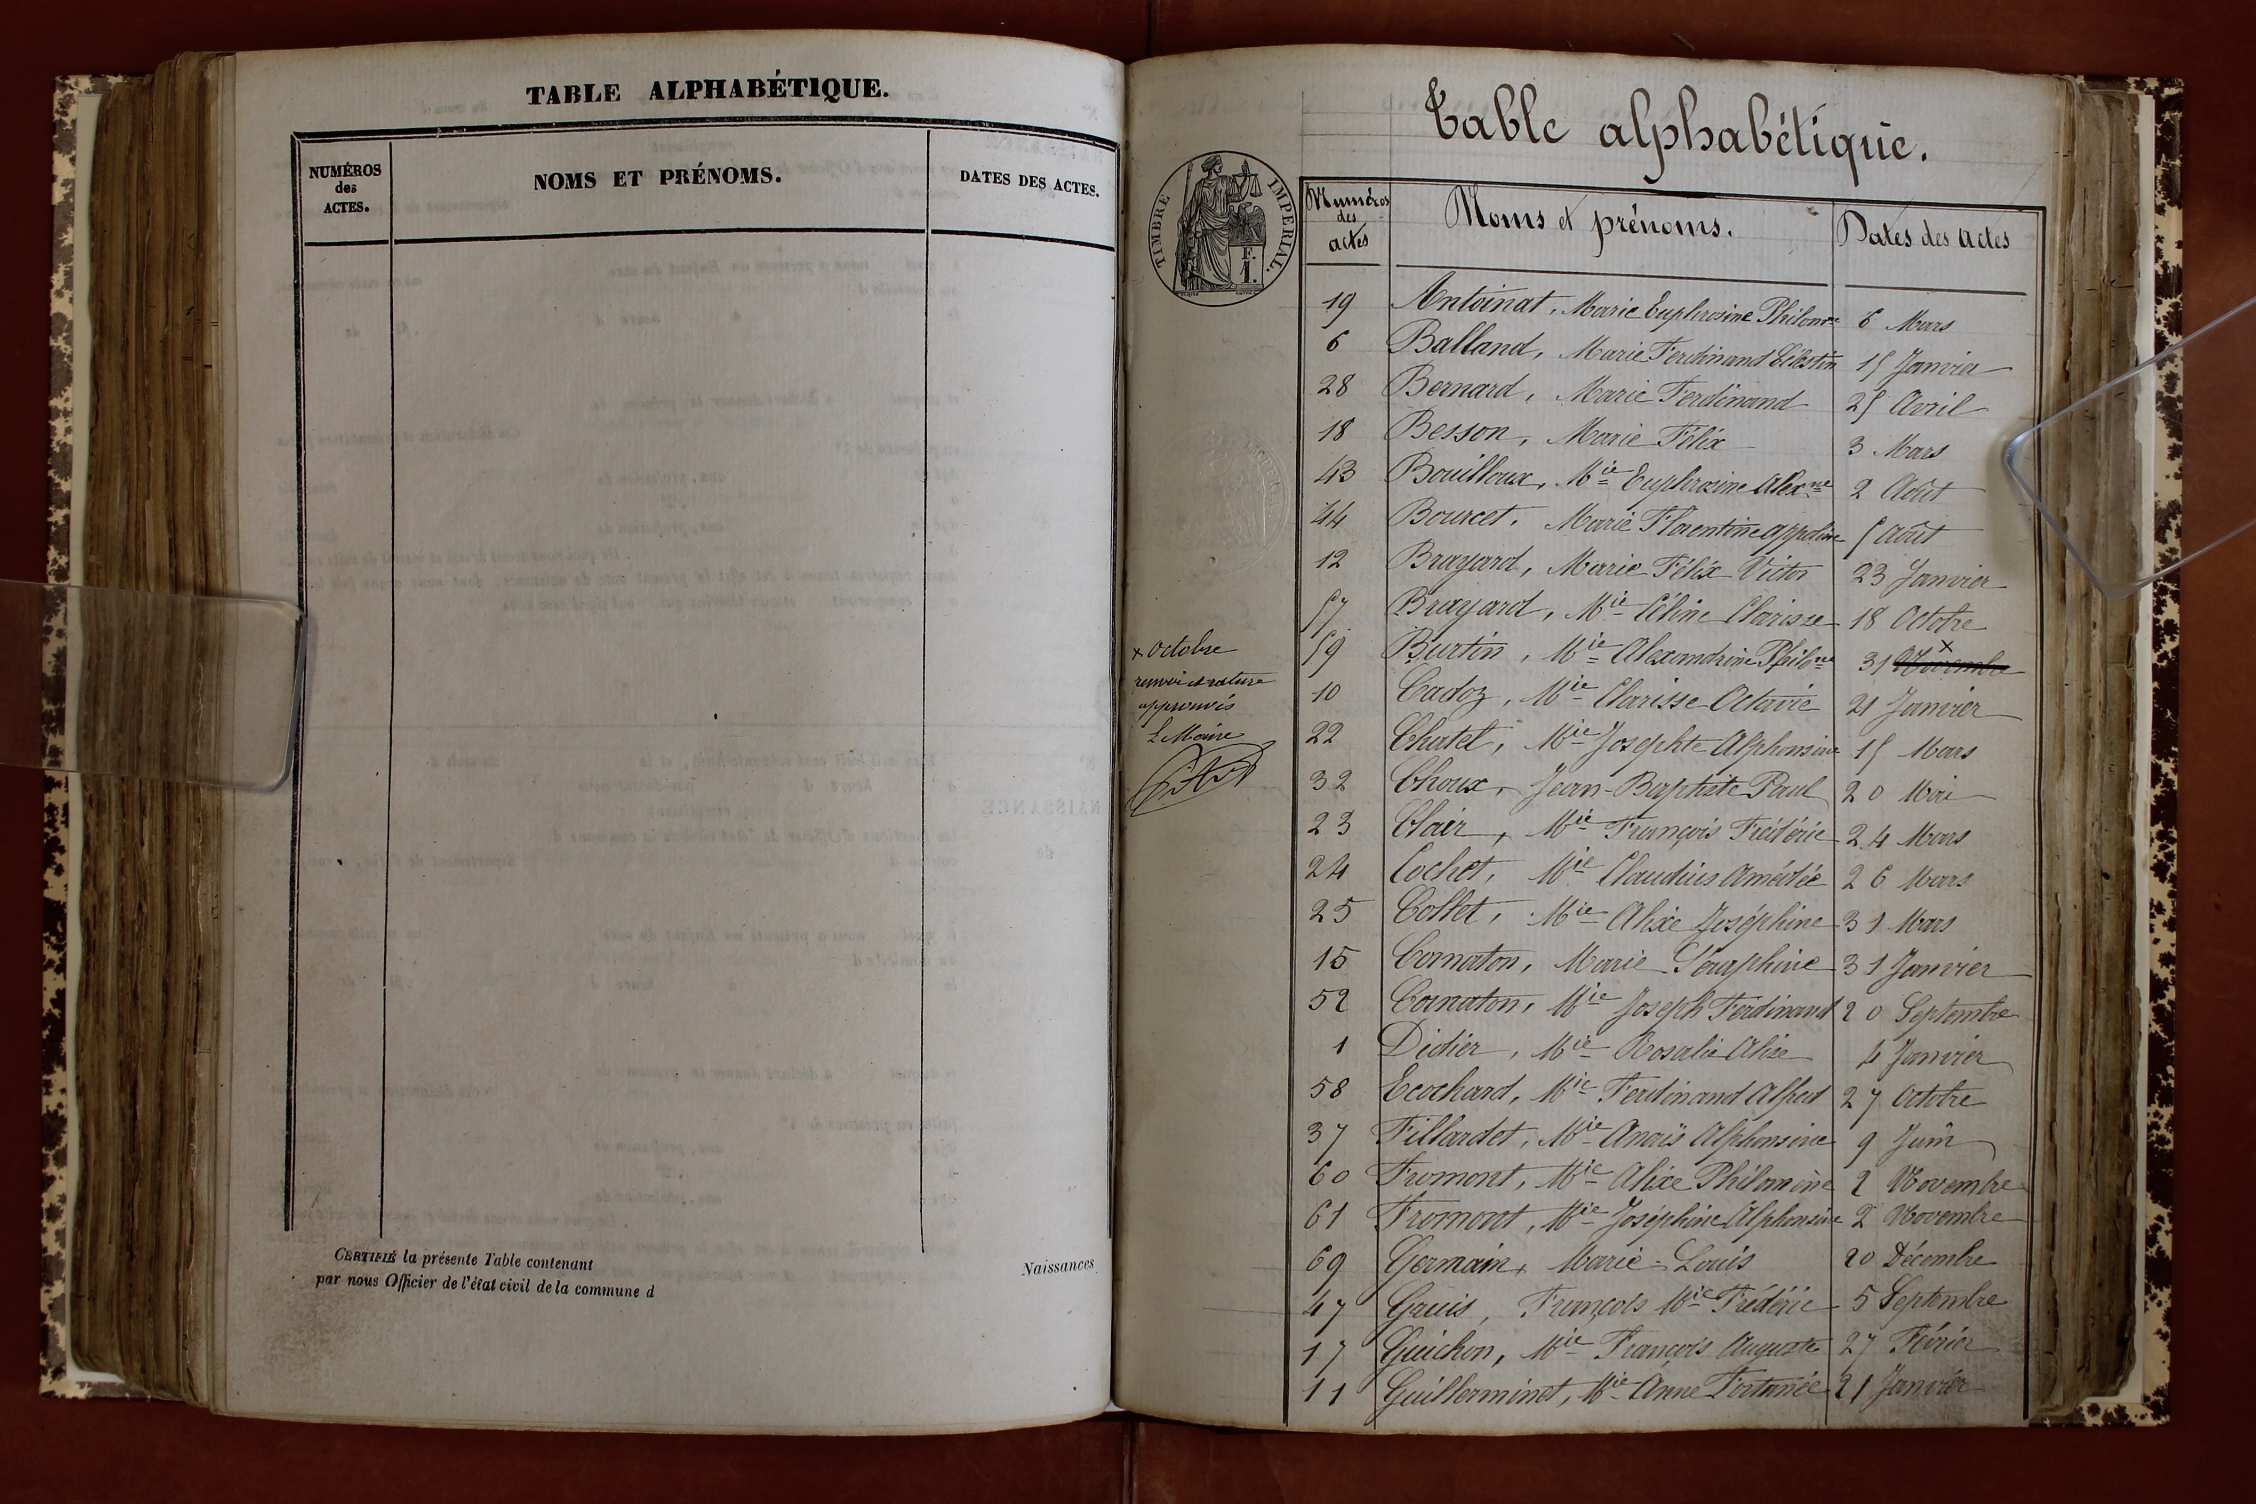 TABLE ALPHABÉTIQUE.
NUMÉROS
des
ACTES.
NOMS ET PRÉNOMS.
DATES DES ACTES.
CERTIFIÉ la présente Table contenant
par nous Officier de l'état civil de la commune d
Naissances
Table alphabétique.
TIMBRE IMPERIAL.
F.
1.
Numéros
des
actes
Noms et prénoms.
Dates des actes
19 Antoinat, Marie Euphrosine Philomne 6 Mars
6 Balland, Marie Ferdinand Célestin 15 Janvier
28 Bernard, Marie Ferdinand 25 Avril
18 Besson, Marie Félix 3 Mars
43 Bouilloux, Mie Euphrosine Alexne 2 Août
44 Bourcet, Marie Florentine appoline 5 Août
12 Brayard, Marie Félix Victor 23 Janvier
57 Brayard, Mie Céline Clarisse 18 Octobre
59 Burtin, Mie Alexandrine Philone 31 Novembre x
x Octobre
renvoi et rature
approuvés
L Maire
10 Cadoz, Mie Clarisse Octavie 21 Janvier
22 Chatel, Mie Josephte Alphonsine 15 Mars
32 Choux, Jean-Baptiste Paul 20 Mai
23 Clair, Mie François Frédéric 24 Mars
24 Cochet, Mie Claudius Amédée 26 Mars
25 Collet, Mie Alixe Joséphine 31 Mars
15 Cornaton, Marie Séraphine 31 Janvier
52 Cornaton, Mie Joseph Ferdinand 20 Septembre
1 Didier, Mie Rosalie Alise 4 Janvier
58 Ecochard, Mie Ferdinand Alfred 27 Octobre
37 Fillardet, Mie Anaïs Alphonsine 9 Juin
60 Fromont, Mie Alixe Philomène 2 Novembre
61 Fromont, Mie Joséphine Alphonsine 2 Novembre
69 Germain, Marie-Louis 20 Décembre
47 Gruis, François Mie Frédéric 5 Septembre
17 Guichon, Mie François Auguste 27 Février
11 Guillerminet, Mie Anne Fortunée 21 Janvier